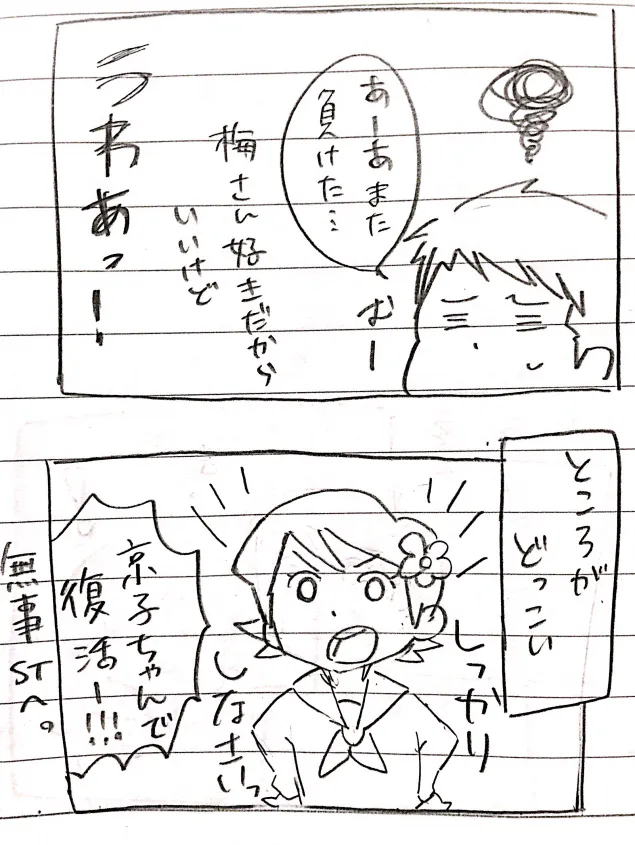 あーあまた
負けた…
むー
梅さん好きだから
いいけど
うわあっー
ところが
どっこい
しっかり
しなさいっ
京子ちゃんで
復活ー!!!
無事STへ。